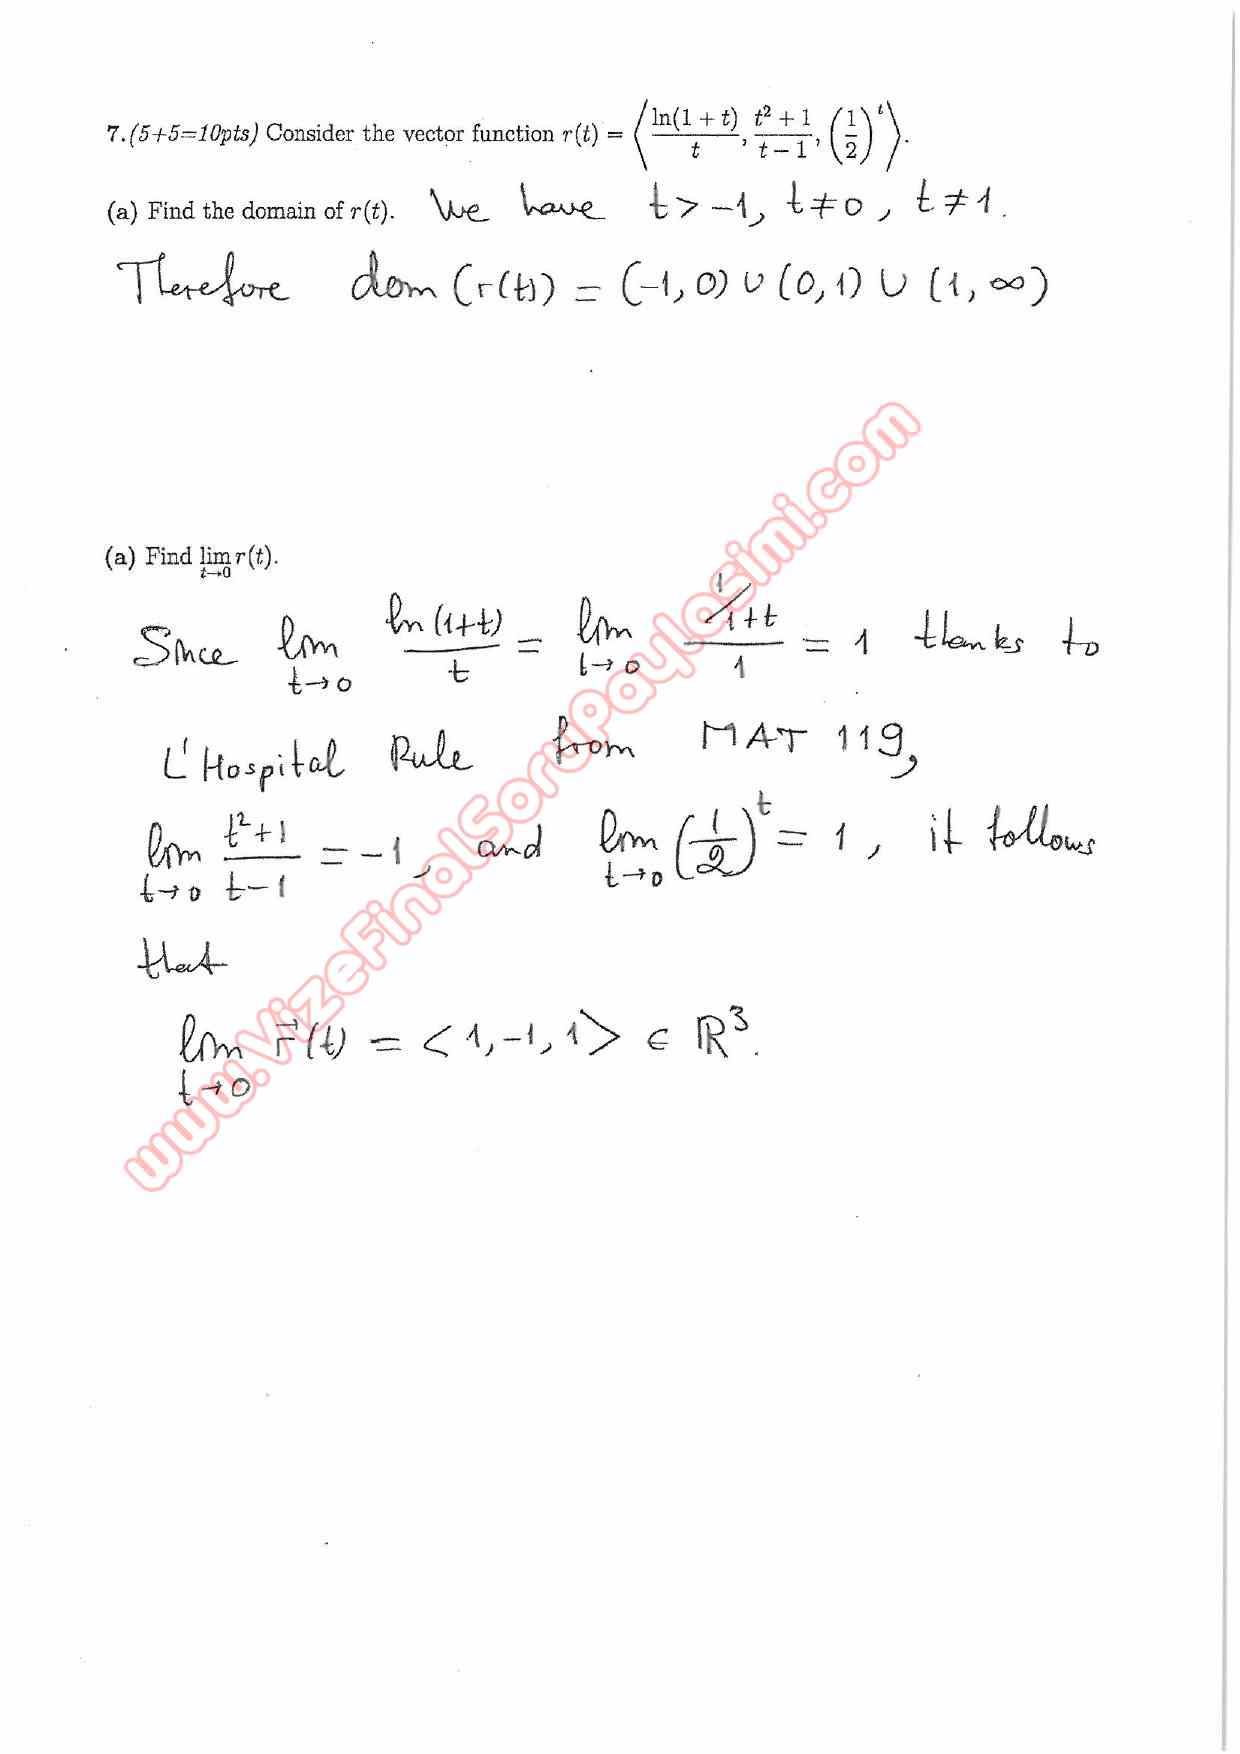 7.(5+5=10pts) Consider the vector function r(t) = ⟨ln(1 + t)/t, (t² + 1)/(t − 1), (1/2)^t⟩.
(a) Find the domain of r(t). We have t > -1, t ≠ 0, t ≠ 1.
Therefore dom (r(t)) = (-1, 0) ∪ (0, 1) ∪ (1, ∞)
(a) Find lim t→0 r(t).
Since lim t→0 ln(1+t)/t = lim t→0 (1/1+t)/1 = 1 thanks to
L'Hospital Rule from MAT 119,
lim t→0 (t²+1)/(t-1) = -1, and lim t→0 (1/2)^t = 1, it follows
that
lim t→0 r⃗(t) = <1, -1, 1> ∈ ℝ³.
www.VizeFinalSoruPaylasimi.com